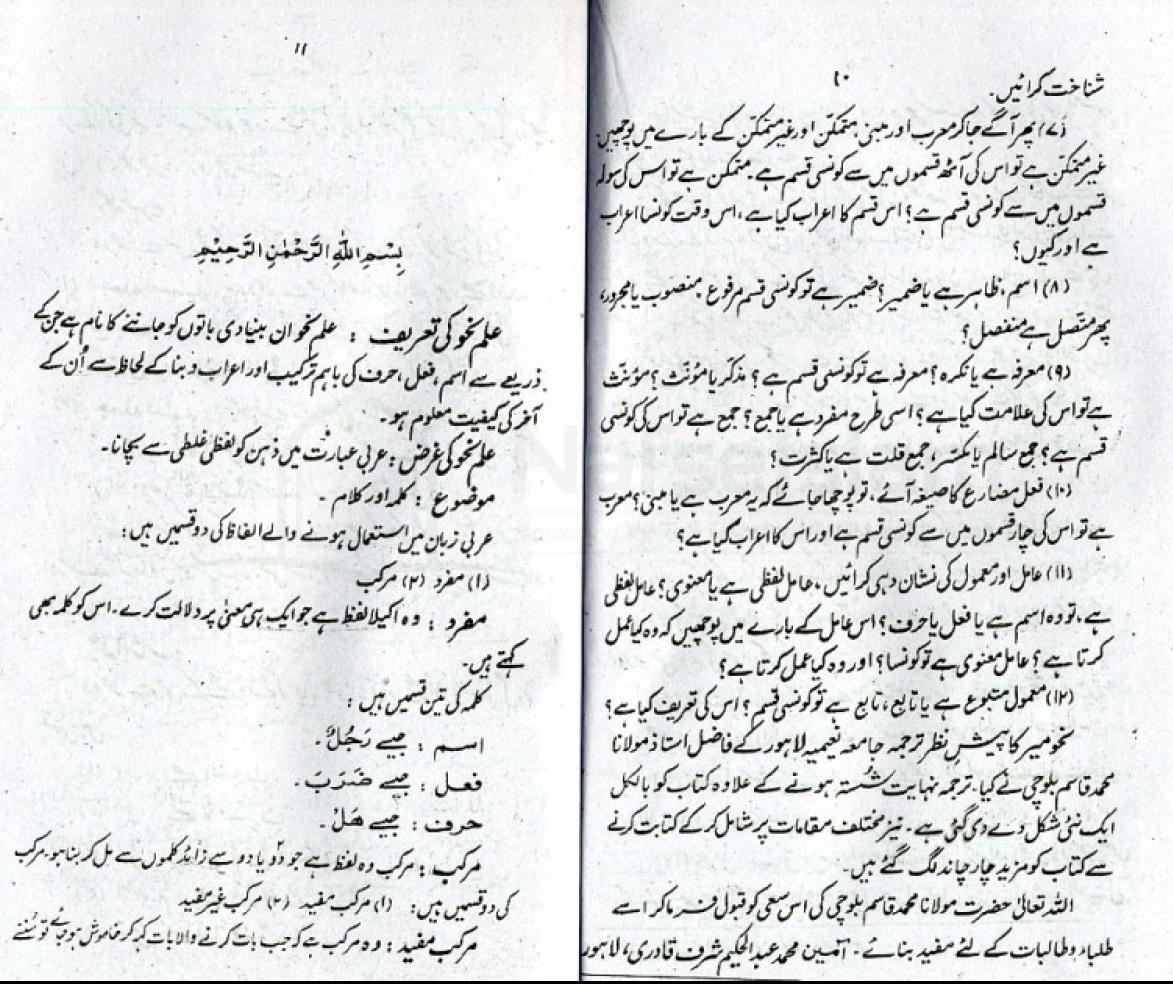 ۱۰
شناخت کرائیں۔
(۷) پھر آگے جا کر معرب اور مبنی، متمکن اور غیر متمکن کے بارے میں پوچھیں
غیر متمکن ہے تو اس کی آٹھ قسموں میں سے کونسی قسم ہے۔ متمکن ہے تو اس کی سولہ
قسموں میں سے کونسی قسم ہے؟ اس قسم کا اعراب کیا ہے، اس وقت کونسا اعراب
ہے اور کیوں؟
(۸) اسم، ظاہر ہے یا ضمیر؟ ضمیر ہے تو کونسی قسم مرفوع، منصوب یا مجرور،
پھر متصل ہے منفصل؟
(۹) معرفہ ہے یا نکرہ؟ معرفہ ہے تو کونسی قسم ہے؟ مذکر یا مؤنث؟ مؤنث
ہے تو اس کی علامت کیا ہے؟ اسی طرح مفرد ہے یا جمع؟ جمع ہے تو اس کی کونسی
قسم ہے؟ جمع سالم یا مکسر، جمع قلت ہے یا کثرت؟
(۱۰) فعل مضارع کا صیغہ آئے، تو پوچھا جائے کہ یہ معرب ہے یا مبنی؟ معرب
ہے تو اس کی چار قسموں میں سے کونسی قسم ہے اور اس کا اعراب کیا ہے؟
(۱۱) عامل اور معمول کی نشان دہی کرائیں، عامل لفظی ہے یا معنوی؟ عامل لفظی
ہے، تو وہ اسم ہے یا فعل یا حرف؟ اس عامل کے بارے میں پوچھیں کہ وہ کیا عمل
کرتا ہے؟ عامل معنوی ہے تو کونسا؟ اور وہ کیا عمل کرتا ہے؟
(۱۲) معمول متبوع ہے یا تابع، تابع ہے تو کونسی قسم؟ اس کی تعریف کیا ہے؟
نحو میر کا پیشِ نظر ترجمہ جامعہ نعیمیہ لاہور کے فاضل استاذ مولانا
محمد قاسم بلوچی نے کیا۔ ترجمہ نہایت شستہ ہونے کے علاوہ کتاب کو بالکل
ایک نئی شکل دے دی گئی ہے۔ نیز مختلف مقامات پر شامل کر کے کتابت کرنے
سے کتاب کو مزید چار چاند لگ گئے ہیں۔
اللہ تعالیٰ حضرت مولانا محمد قاسم بلوچی کی اس سعی کو قبول فرما کر اسے
طلباء و طالبات کے لئے مفید بنائے۔ آمین محمد عبد الحکیم شرف قادری، لاہور
۱۱
بِسْمِ اللهِ الرَّحْمٰنِ الرَّحِيْمِ
علم نحو کی تعریف : علم نحو ان بنیادی باتوں کو جاننے کا نام ہے جن کے
ذریعے سے اسم، فعل، حرف کی باہم ترکیب اور اعراب و بنا کے لحاظ سے اُن کے
آخر کی کیفیت معلوم ہو۔
علم نحو کی غرض : عربی عبارت میں ذہن کو لفظی غلطی سے بچانا۔
موضوع : کلمہ اور کلام
عربی زبان میں استعمال ہونے والے الفاظ کی دو قسمیں ہیں :
(۱) مفرد (۲) مرکب
مفرد : وہ اکیلا لفظ ہے جو ایک ہی معنیٰ پر دلالت کرے۔ اس کو کلمہ بھی
کہتے ہیں۔
کلمہ کی تین قسمیں ہیں :
اسم : جیسے رَجُلٌ۔
فعل : جیسے ضَرَبَ۔
حرف : جیسے هَلْ۔
مرکب : مرکب وہ لفظ ہے جو دو یا دو سے زائد کلموں سے مل کر بنا ہو۔ مرکب
کی دو قسمیں ہیں : (۱) مرکب مفید (۲) مرکب غیر مفید
مرکب مفید : وہ مرکب ہے کہ جب بات کرنے والا بات کہہ کر خاموش ہو جائے تو سننے